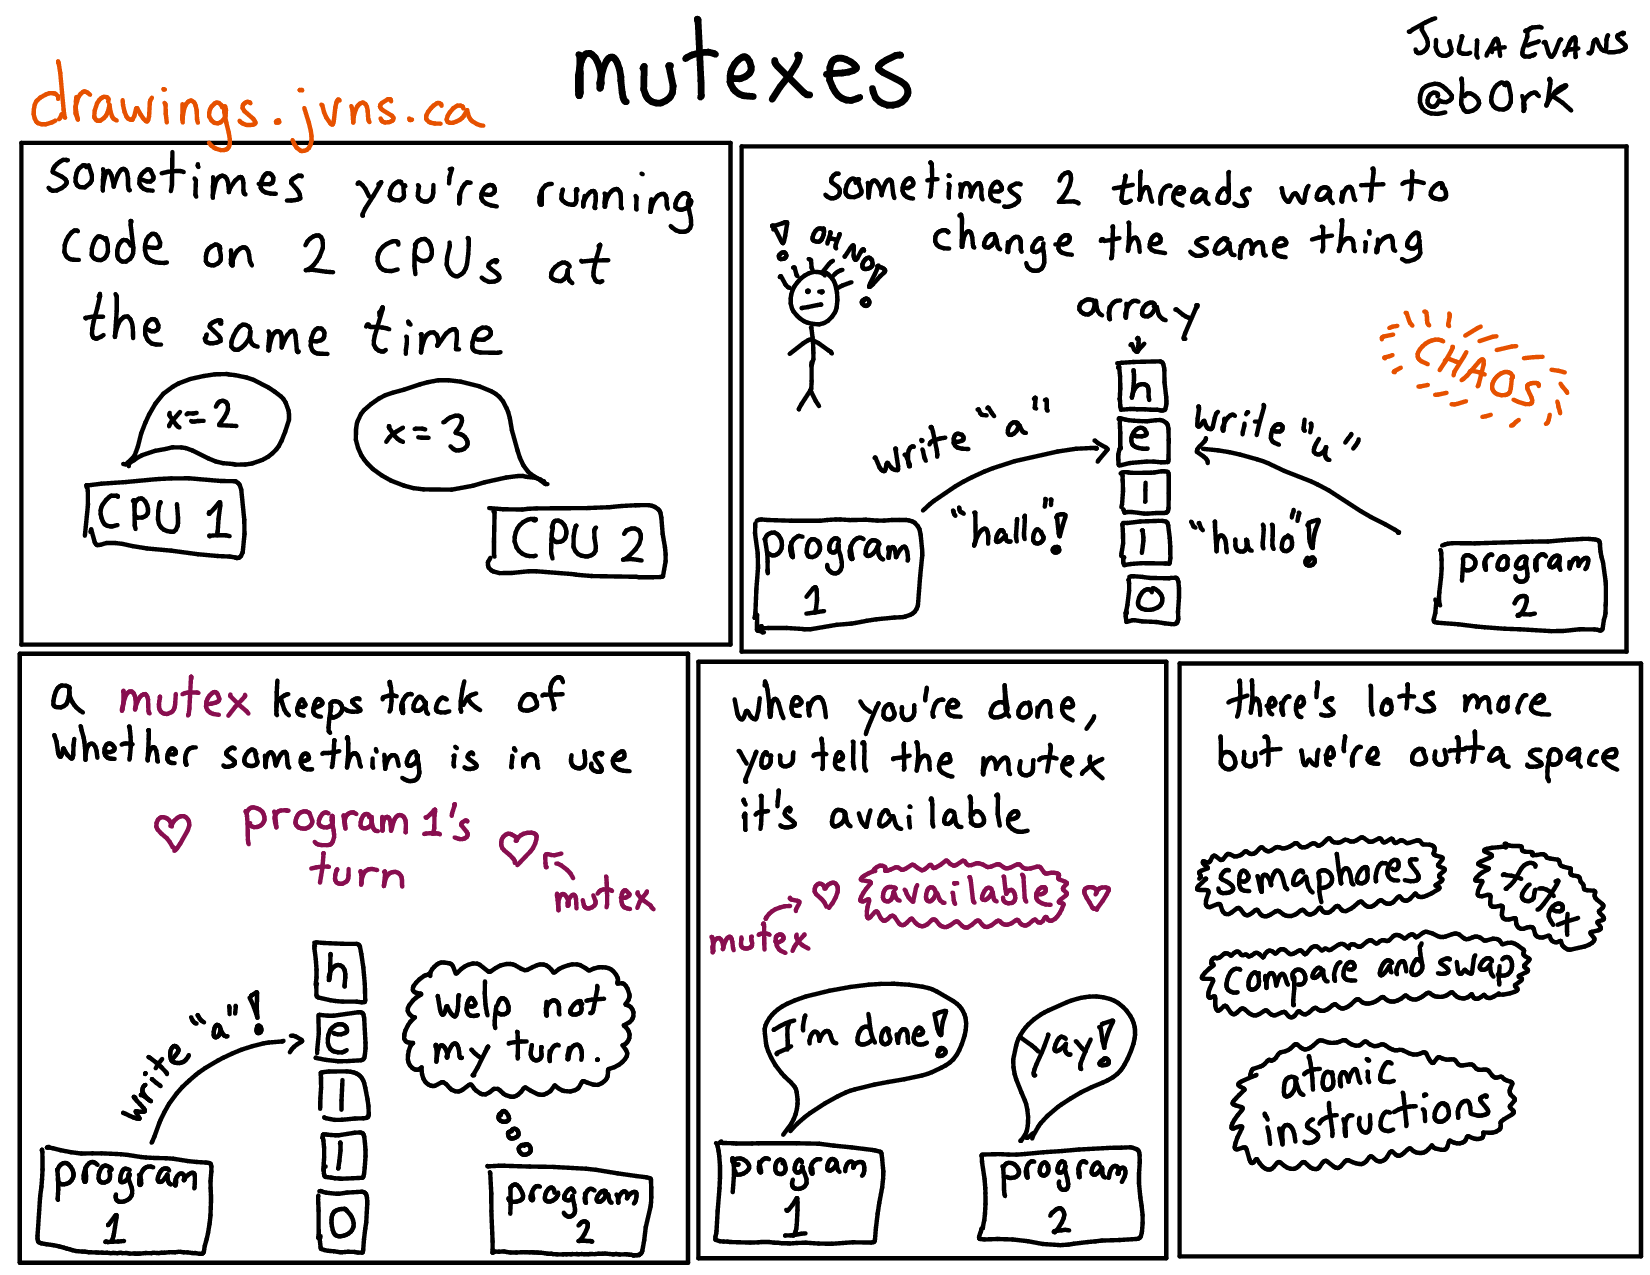 drawings.jvns.ca
mutexes
JULIA EVANS
@b0rk
sometimes you're running
code on 2 CPUs at
the same time
x=2
x=3
CPU 1
CPU 2
sometimes 2 threads want to
change the same thing
! OH NO!
array
CHAOS
h
e
l
l
o
write "a"
write "u"
"hallo"!
"hullo"!
program
1
program
2
a mutex keeps track of
whether something is in use
♡ program 1's ♡
turn
mutex
h
e
l
l
o
write "a"!
welp not
my turn.
program
1
program
2
when you're done,
you tell the mutex
it's available
♡ available ♡
mutex
I'm done!
yay!
program
1
program
2
there's lots more
but we're outta space
semaphores
futex
compare and swap
atomic
instructions